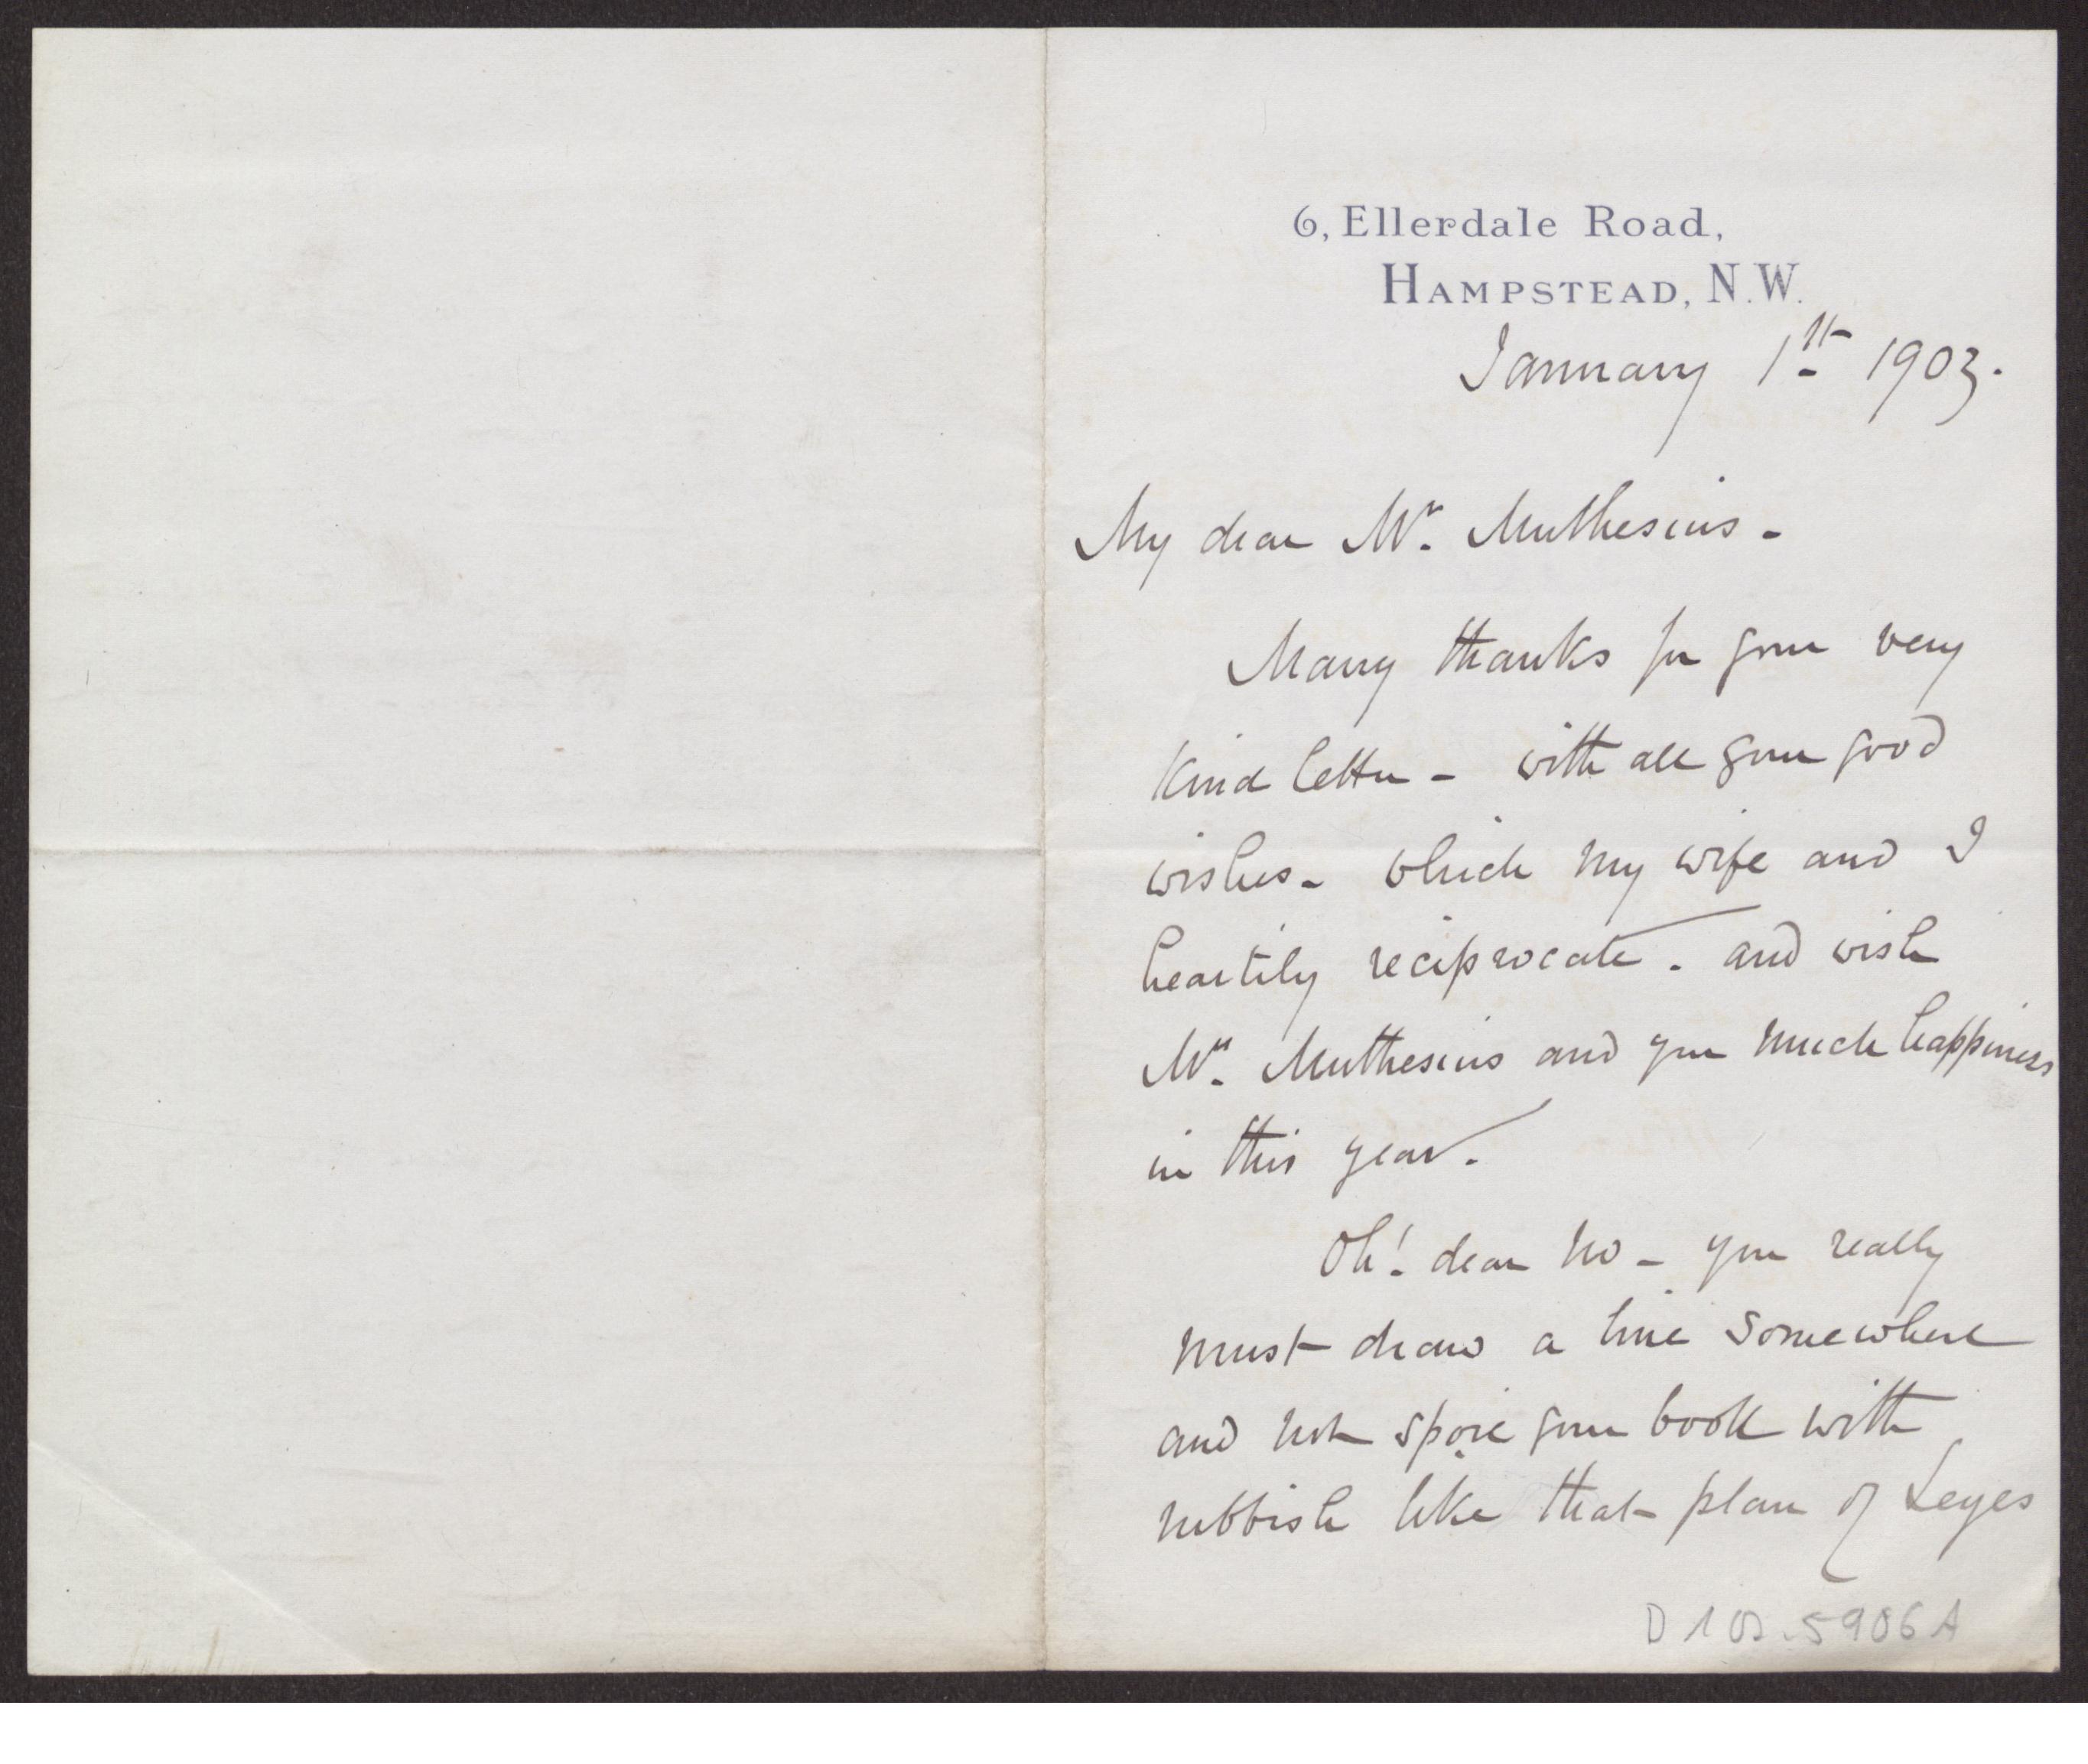 6, Ellerdale Road,
HAMPSTEAD, N.W.
January 1st 1903.
My dear Mr. Muthesius -
Many thanks for your very
kind letter - with all your good
wishes - which my wife and I
heartily reciprocate. and wish
Mrs. Muthesius and you much happiness
in this year.
Oh! dear no - you really
must draw a line somewhere
and not spoil your book with
rubbish like that plan of Leyes
D 102-5906 A